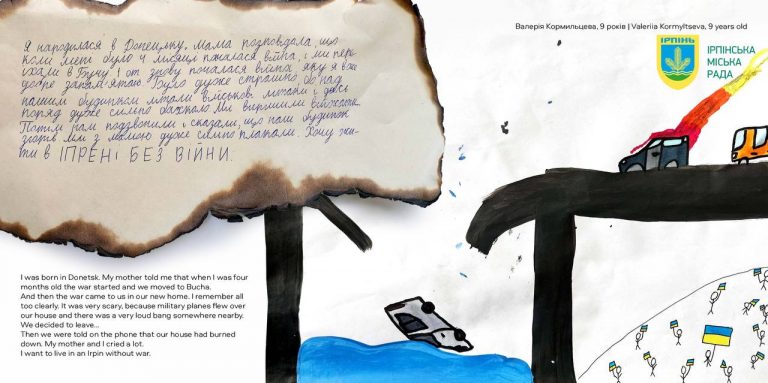 Валерія Кормильцева, 9 років | Valeriia Kormyltseva, 9 years old
ІРПІНЬ
ІРПІНСЬКА
МІСЬКА
РАДА
Я народилася в Донецьку. Мама розповідала, що
коли мені було 4 місяці почалася війна, і ми пере-
їхали в Бучу. І от знову почалася війна яку я вже
добре запам'ятаю. Було дуже страшно, бо над
нашим будинком літали військові літаки і десь
поряд дуже сильно бахкало. Ми вирішили
Потім нам подзвонили і сказали, що наш будинок
згорів. Ми з мамою дуже сильно плакали. Хочу жи-
ти в ІПРЕНІ БЕЗ ВІЙНИ.
I was born in Donetsk. My mother told me that when I was four
months old the war started and we moved to Bucha.
And then the war came to us in our new home. I remember all
too clearly. It was very scary, because military planes flew over
our house and there was a very loud bang somewhere nearby.
We decided to leave...
Then we were told on the phone that our house had burned
down. My mother and I cried a lot.
I want to live in an Irpin without war.